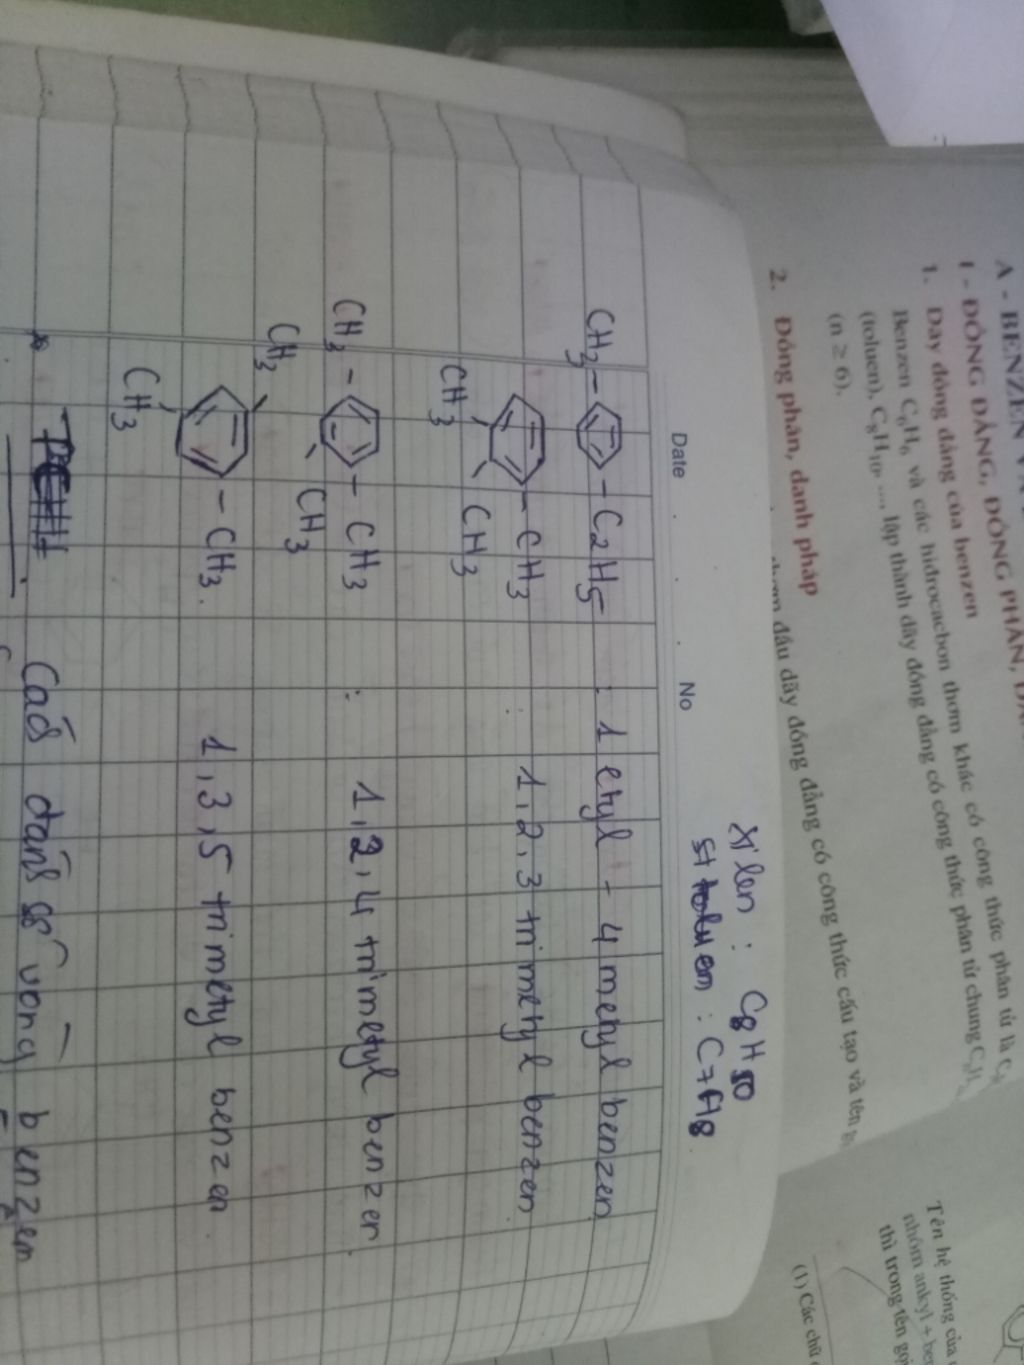 A - BENZEN
I - ĐỒNG ĐẲNG, ĐỒNG PHÂN,
1. Dãy đồng đẳng của benzen
Benzen C6H6 và các hiđrocacbon thơm khác có công thức phân tử là
(toluen), C8H10, ..., lập thành dãy đồng đẳng có công thức phân tử chung
(n ≥ 6).
2. Đồng phân, danh pháp
đầu dãy đồng đẳng có công thức cấu tạo và tên
Tên hệ thống của
nhóm ankyl +
thì trong tên gọi
(1) Các chữ
xi len : C8H10
toluen : C7H8
Date No
CH3 - C2H5 : 1 etyl - 4 metyl benzen
- CH3 : 1,2,3 trimetyl benzen
CH3 CH3
CH3 - - CH3 : 1,2,4 trimetyl benzen.
CH3
CH3
- CH3. 1,3,5 trimetyl benzen
CH3
* Cách đánh số vòng benzen